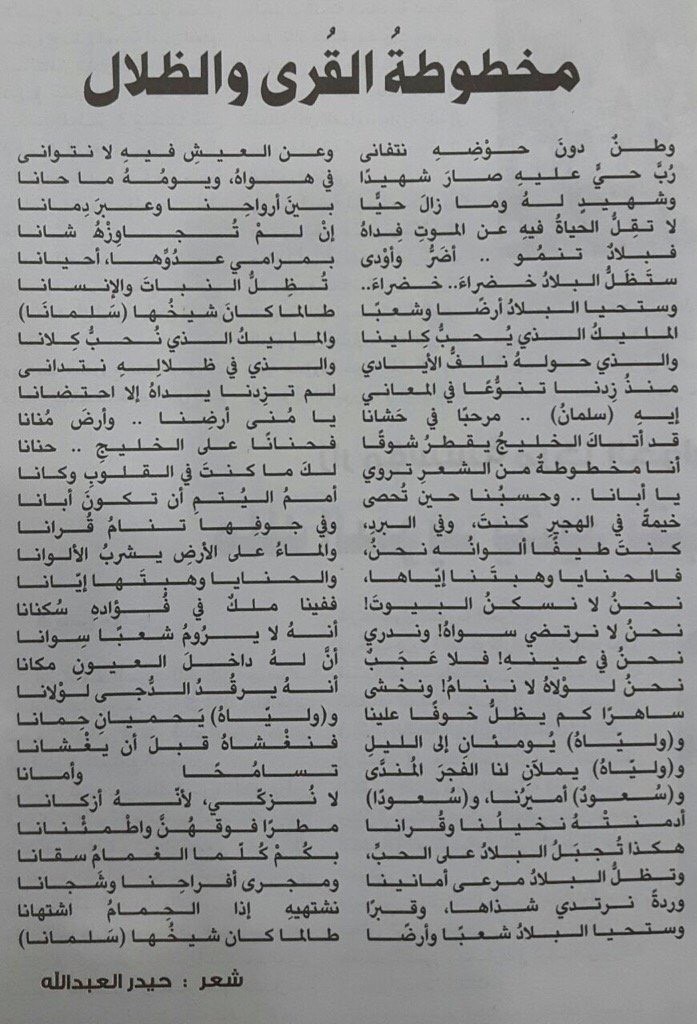 مخطوطةُ القُرى والظلال
وطنٌ دونَ حوْضِهِ نتفانى وعن العيشِ فيهِ لا نتوانى
رُبَّ حيٍّ عليهِ صارَ شهيدًا في هواهُ، ويومُهُ ما حانا
وشهيدٍ لهُ وما زالَ حيًّا بينَ أرواحِنا وعبرَ دِمانا
لا تقِلُّ الحياةُ فيهِ عن الموتِ فِداهُ إنْ لمْ تُجاوِزْهُ شانا
فبلادٌ تنمُو .. أضَرُّ وأوْدى بمرامي عدُوِّها، أحيانا
ستَظَلُّ البلادُ خضراءَ.. خضراءَ.. تُظِلُّ النباتَ والإنسانا
وستحيا البلادُ أرضًا وشعبًا طالما كانَ شيخُها (سَلمانَا)
المليكُ الذي يُحبُّ كِلينا والمليكُ الذي نُحبُّ كِلانا
والذي حولهُ نلفُّ الأيادي والذي في ظلالِهِ نتدانى
منذُ زِدنا تنوُّعًا في المعاني لم تزِدنا يداهُ إلا احتضانا
إيهِ (سلمانُ) .. مرحبًا في حَشانا يا مُنى أرضِنا .. وأرضَ مُنانا
قد أتاكَ الخليجُ يقطرُ شوقًا فحنانًا على الخليجِ .. حنانا
أنا مخطوطةٌ من الشعرِ تروي لكَ ما كنتَ في القلوبِ وكانا
يا أبانا .. وحسبُنا حين تُحصى أممُ اليُتمِ أن تكونَ أبانا
خيمةً في الهجيرِ كنتَ، وفي البردِ، وفي جوفِها تنامُ قُرانا
كنتَ طيفًا ألوانُه نحنُ، والماءُ على الأرضِ يشربُ الألوانا
فالحنايا وهبتَنا إيّاها، والحنايا وهبتَها إيّانا
نحنُ لا نسكنُ البيوتَ! ففينا ملكٌ في فُؤادِهِ سُكنانا
نحنُ لا نرتضي سواهُ! وندري أنهُ لا يرُومُ شعبًا سِوانا
نحنُ في عينِهِ! فلا عجَبٌ أنَّ لهُ داخلَ العيونِ مكانا
نحنُ لوْلاهُ لا ننامُ! ونخشى أنهُ يرقدُ الدُّجى لوْلانا
ساهرًا كم يظلُّ خوفًا علينا و(وليّاهُ) يَحميانِ حِمانا
و(وليّاهُ) يُومئانِ إلى الليلِ فنغْشاهُ قبلَ أن يغْشانا
و(وليّاهُ) يملآنِ لنا الفجرَ المُندَّى تسامُحًا وأمانا
و(سُعودٌ) أميرُنا، و(سُعودًا) لا نُزكّي، لأنّهُ أزكانا
أدمنتْهُ نخيلُنا وقُرانا مطرًا فوقهُنَّ واطْمئنانا
هكذا تُجبَلُ البلادُ على الحبِّ، بكُمْ كُلّما الغمامُ سقانا
وتظلُّ البلادُ مرعى أمانينا ومجرى أفراحِنا وشَجانا
وردةً نرتدي شذاها، وقبرًا نشتهيهِ إذا الحِمامُ اشتهانا
وستحيا البلادُ شعبًا وأرضًا طالما كان شيخُها (سَلمانا)
شعر : حيدر العبدالله